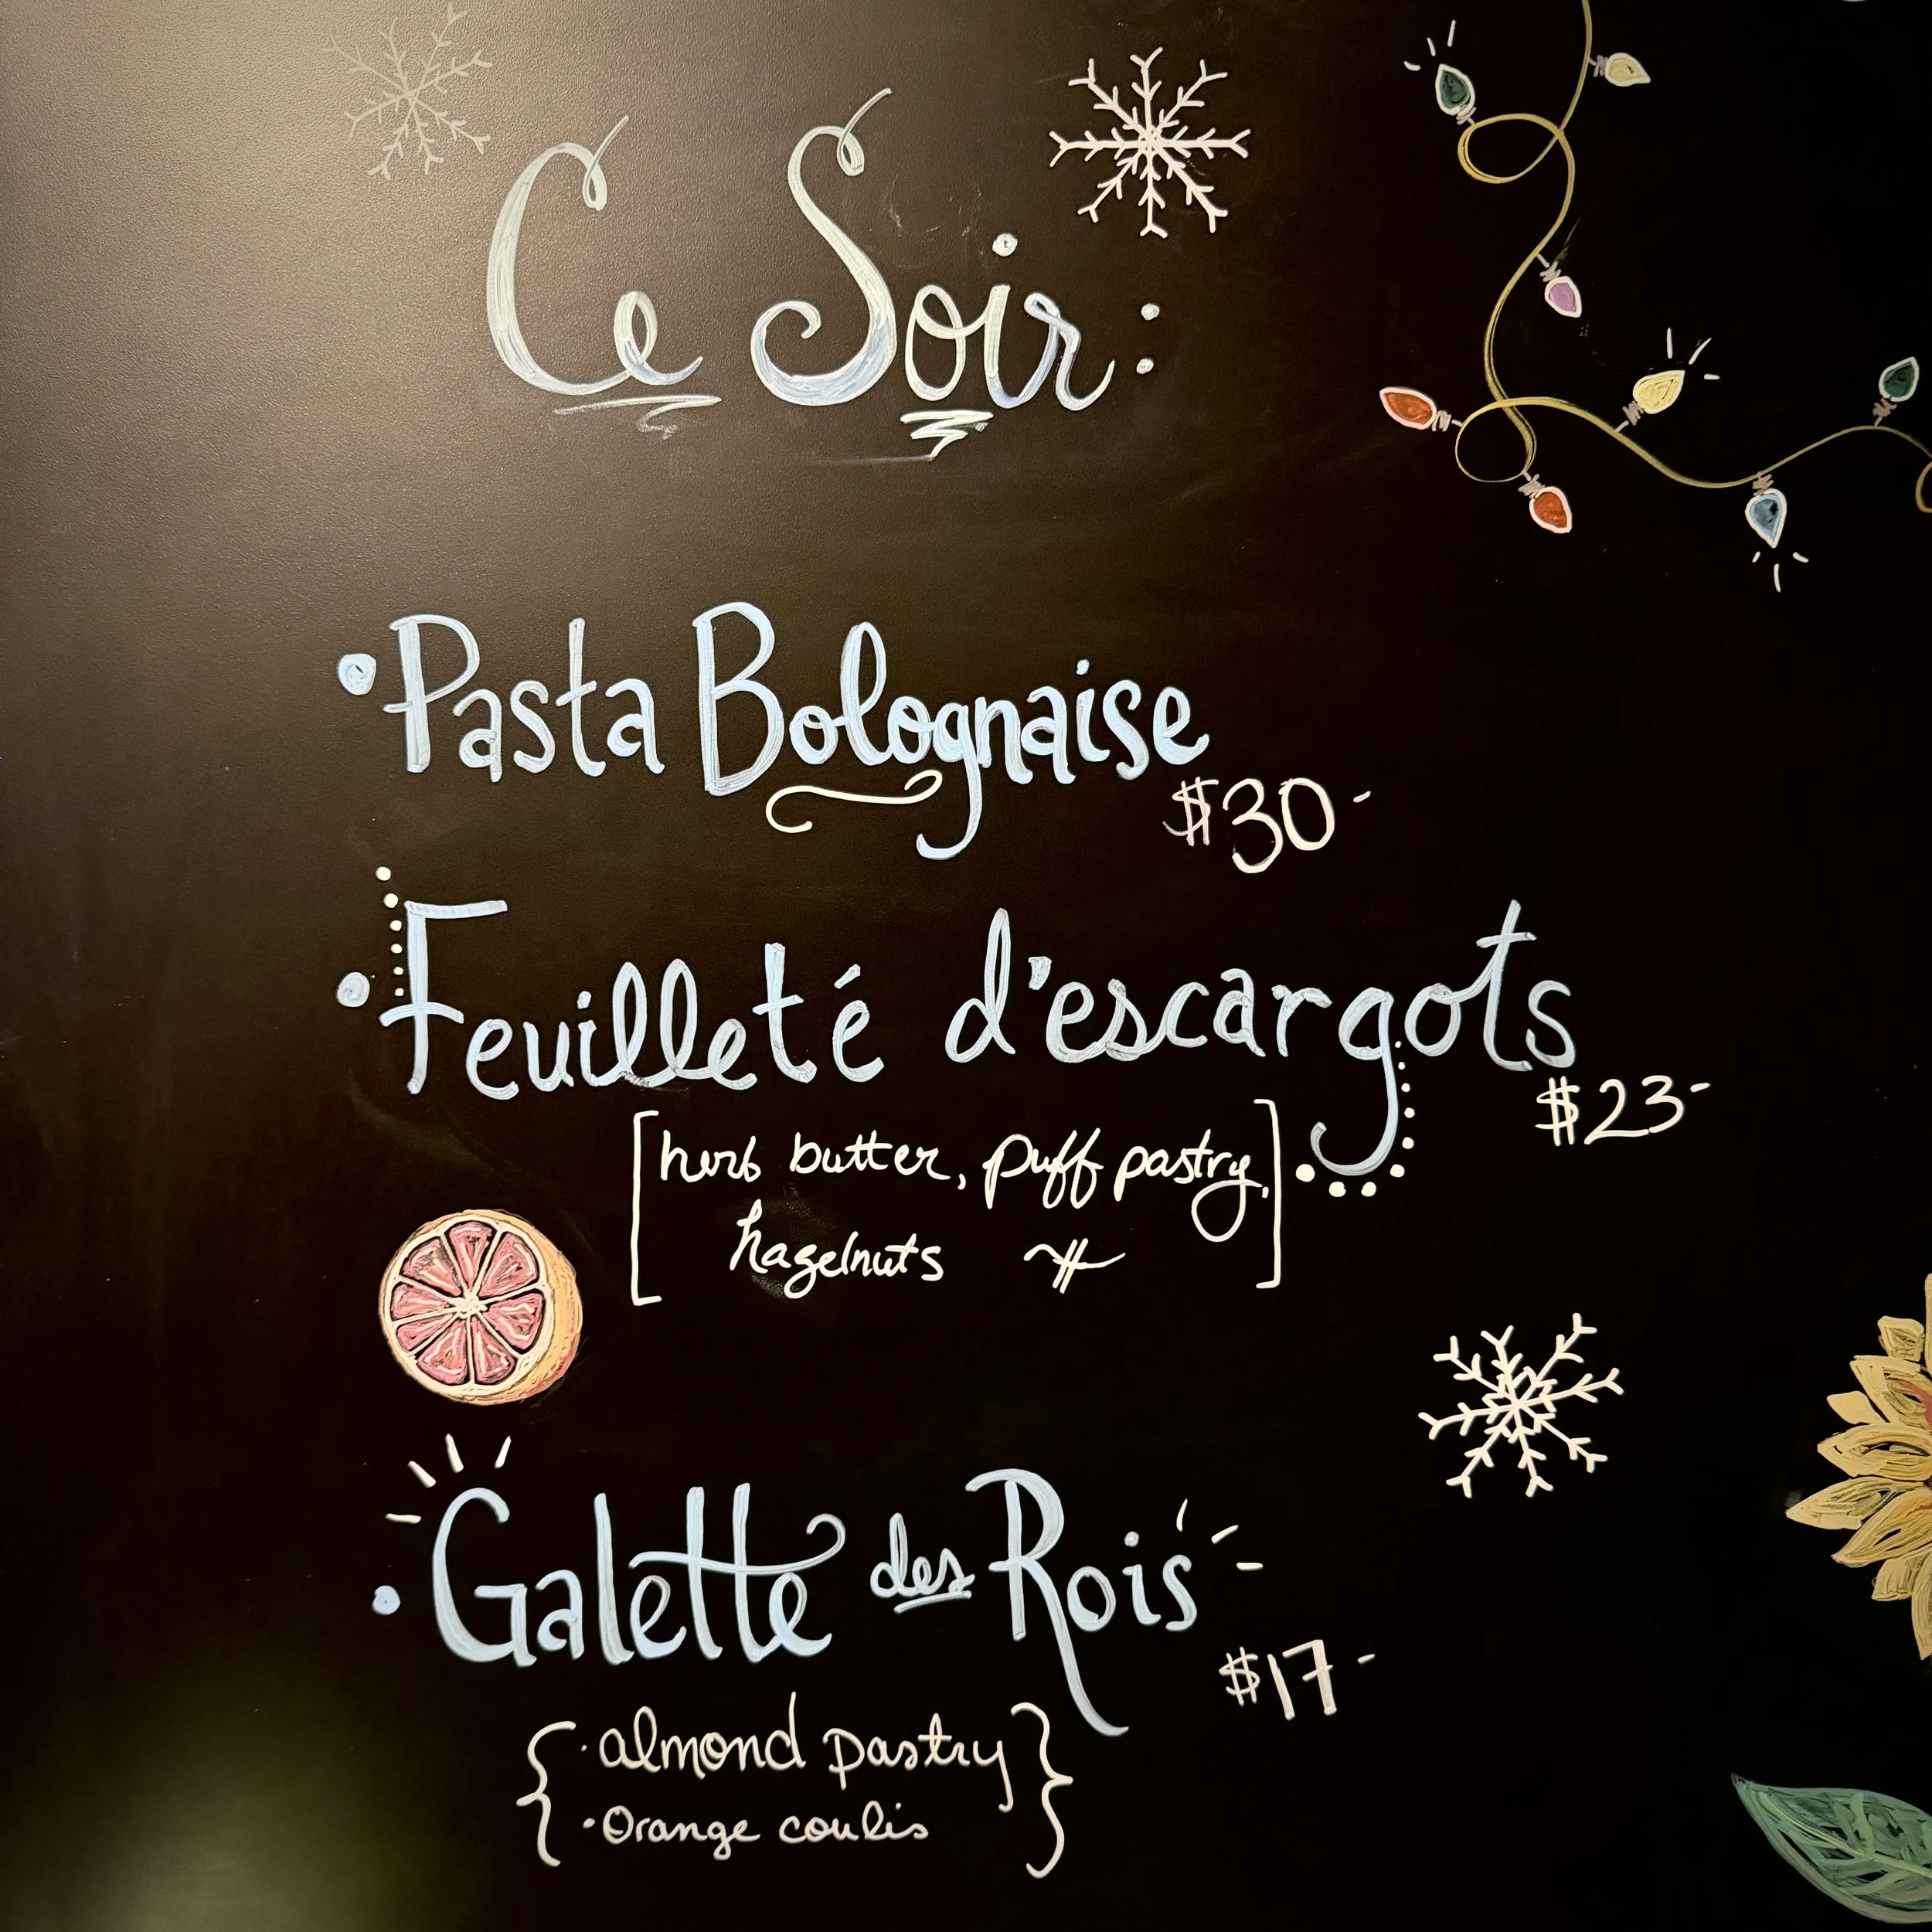 Ce Soir :
• Pasta Bolognaise
$30-
• Feuilleté d'escargots
$23-
[herb butter, puff pastry,
hazelnuts]
• Galette des Rois
$17-
{· almond pastry
· Orange coulis}